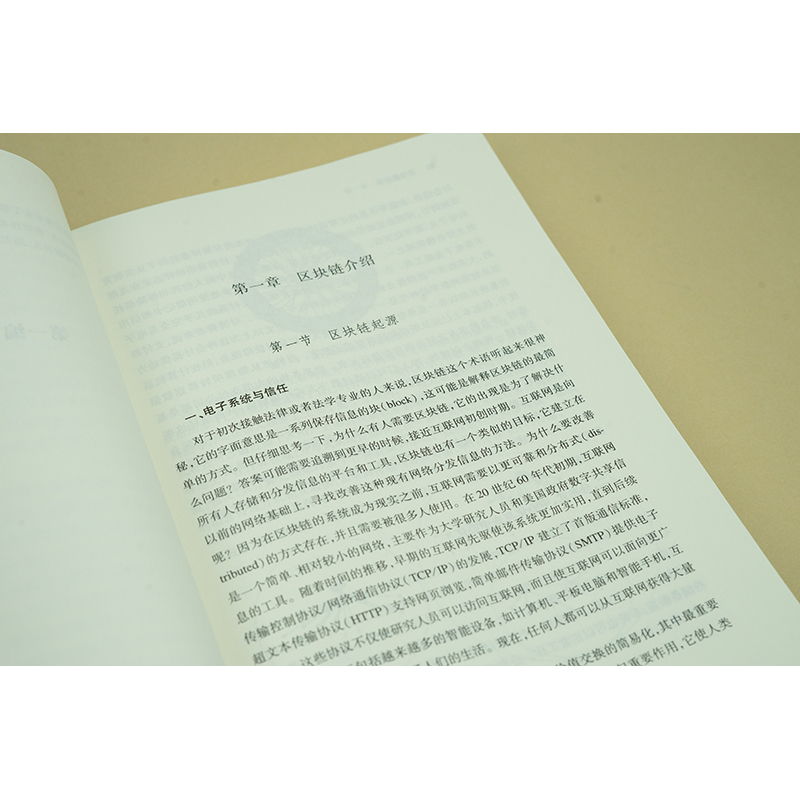 第一章 区块链介绍
第一节 区块链起源
一、电子系统与信任
对于初次接触法律或者法学专业的人来说,区块链这个术语听起来很神
秘,它的字面意思是一系列保存信息的块(block),这可能是解释区块链的最简
单的方式。但仔细思考一下,为什么有人需要区块链,它的出现是为了解决什
么问题?答案可能需要追溯到更早的时候,接近互联网初创时期。互联网是向
所有人存储和分发信息的平台和工具,区块链也有一个类似的目标,它建立在
以前的网络基础上,寻找改善这种现有网络分发信息的方法。为什么要改善
呢?因为在区块链的系统成为现实之前,互联网需要以更可靠和分布式(dis-
tributed)的方式存在,并且需要被很多人使用。在20世纪60年代初期,互联网
是一个简单、相对较小的网络,主要作为大学研究人员和美国政府数字共享信
息的工具。随着时间的推移,早期的互联网先驱使该系统更加实用,直到后续
传输控制协议/网络通信协议(TCP/IP)的发展,TCP/IP建立了首版通信标准,
超文本传输协议(HTTP)支持网页浏览,简单邮件传输协议(SMTP)提供电子
这些协议不仅使研究人员可以访问互联网,而且使互联网可以面向更广
包括越来越多的智能设备,如计算机、平板电脑和智能手机,互
人们的生活。现在,任何人都可以从互联网获得大量
价值交换的简易化,其中最重要
重要作用,它使人类